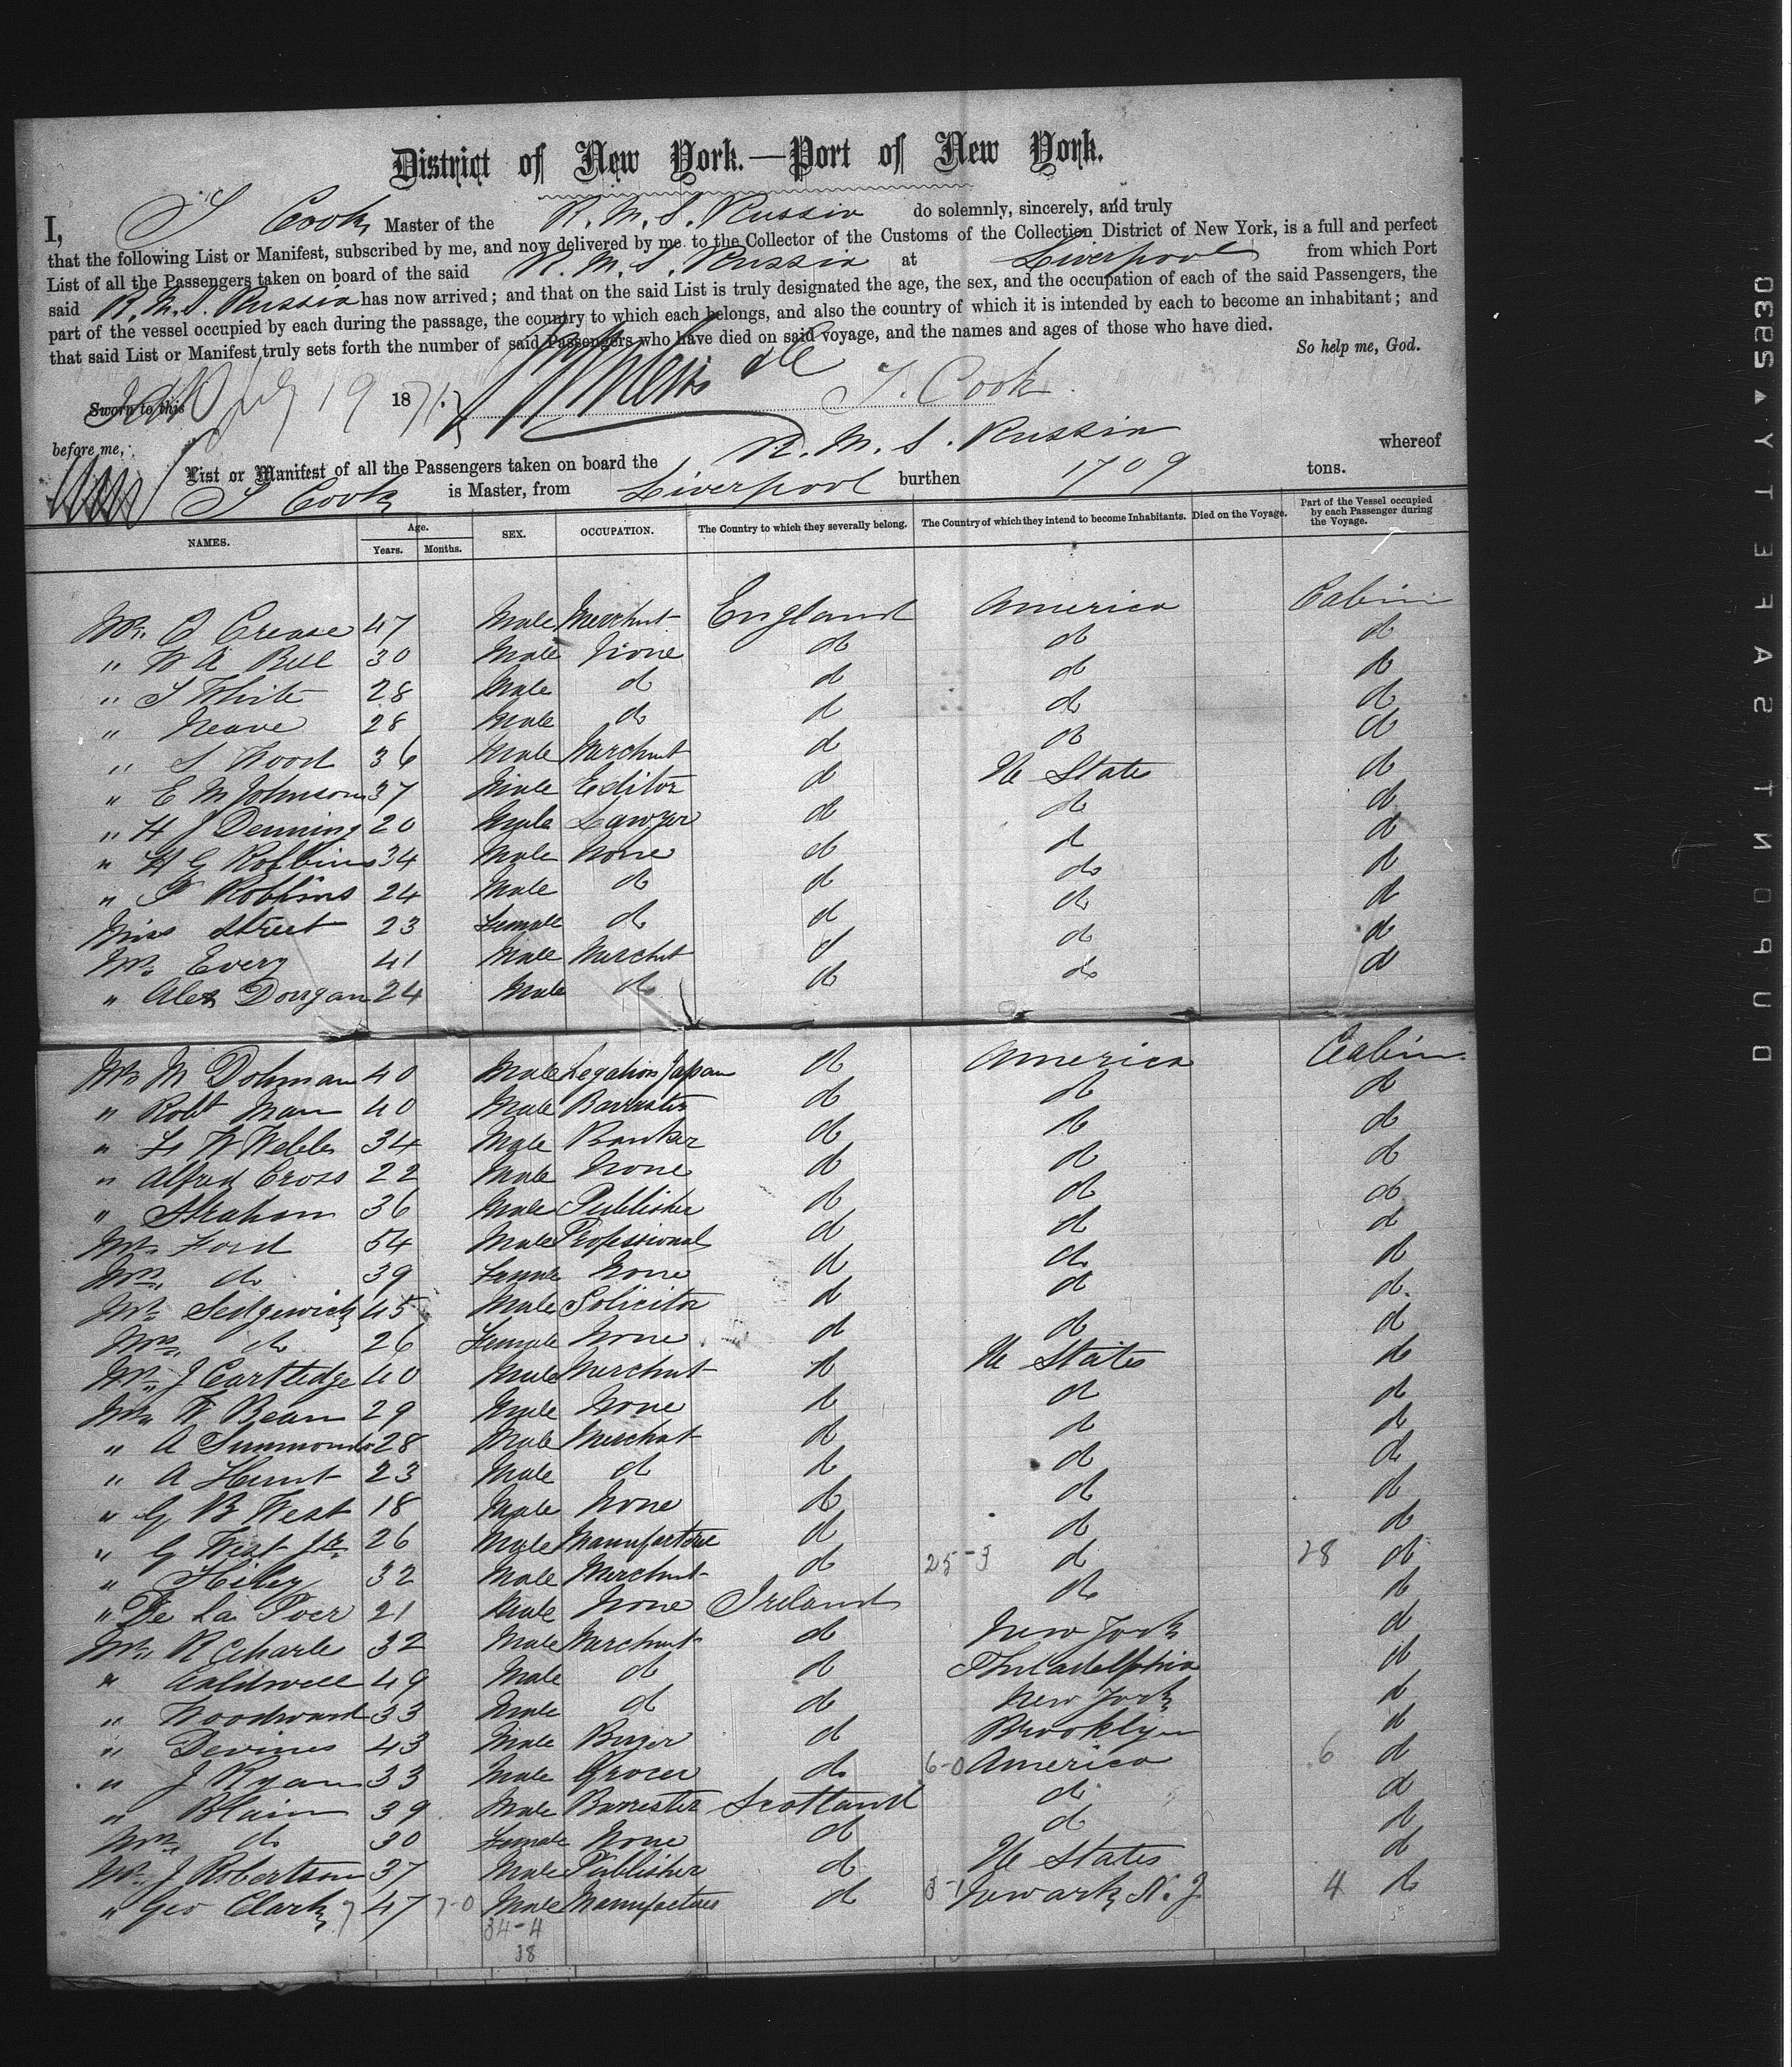 District of New York.—Port of New York.
I, S Cook Master of the R.M.S. Russia do solemnly, sincerely, and truly
that the following List or Manifest, subscribed by me, and now delivered by me to the Collector of the Customs of the Collection District of New York, is a full and perfect
List of all the Passengers taken on board of the said R.M.S. Russia at Liverpool from which Port
said R.M.S. Russia has now arrived; and that on the said List is truly designated the age, the sex, and the occupation of each of the said Passengers, the
part of the vessel occupied by each during the passage, the country to which each belongs, and also the country of which it is intended by each to become an inhabitant; and
that said List or Manifest truly sets forth the number of said Passengers who have died on said voyage, and the names and ages of those who have died.
So help me, God.
Sworn to this July 19 1871. S. Cook
before me,
List or Manifest of all the Passengers taken on board the R.M.S. Russia whereof
S Cook is Master, from Liverpool burthen 1709 tons.
NAMES. Age. Years. Months. SEX. OCCUPATION. The Country to which they severally belong. The Country of which they intend to become Inhabitants. Died on the Voyage. Part of the Vessel occupied by each Passenger during the Voyage.
Mr. C Crease 47 Male Merchnt England America Cabin
" W A Bell 30 Male None do do do
" S White 28 Male do do do do
" Neave 28 Male do do do do
" S Wood 36 Male Merchnt do do do
" E M Johnson 37 Male Editor do U States do
" H J Denning 20 Male Lawyer do do do
" H G Robbins 34 Male None do do do
" F Robbins 24 Male do do do do
Miss Street 23 Female do do do do
Mr. Every 41 Male Merchnt do do do
" Alex Dongan 24 Male do do do do
Mr M Dohman 40 Male Legation Japan do America Cabin
" Robt Man 40 Male Barrister do do do
" F W Webb 34 Male Banker do do do
" Alfred Cross 22 Male None do do do
" Strahan 36 Male Publisher do do do
Mr. Ford 54 Male Professional do do do
Mrs. do 39 Female None do do do
Mr. Sedgewick 45 Male Solicitor do do do
Mrs. do 26 Female None do do do
Mr. J Cartledge 40 Male Merchnt do U States do
Mr. W Bean 29 Male None do do do
" A Simmonds 28 Male Merchnt do do do
" A Hunt 23 Male do do do do
" G B West 18 Male None do do do
" G West Jr. 26 Male Manufacture do do do
" Hiley 32 Male Merchnt do 25-3 do 28 do
" De La Poer 21 Male None Ireland do do
Mr. R Charle 32 Male Merchnt do New York do
" Caldwell 49 Male do do Philadelphia do
" Woodward 33 Male do do New York do
" Devines 43 Male Buyer do Brooklyn do
" J Ryan 33 Male Grocer do 6-0 America 6 do
" Blain 39 Male Barrester Scotland do do
Mrs. do 30 Female None do do do
Mr. J Robertson 37 Male Publisher do U States do
" Geo Clark 47 7-0 Male Manufacture do 3-1 Newark N.J 4 do
34-4
38
02330 ▲ Y T E F A S T N O P U D